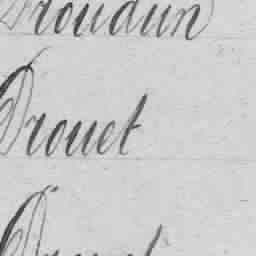 Droudun
Drouet